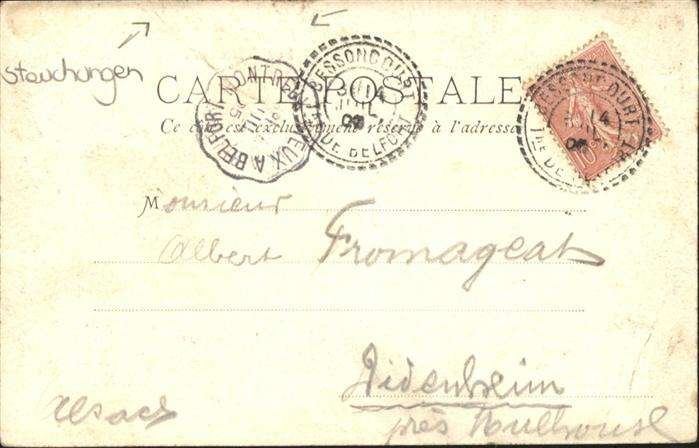 Stauchungen
CARTE POSTALE
Ce côté est exclusivement réservé à l'adresse
BESSONCOURT
14
JUIL
Tre DE BELFORT
BESSONCOURT
14
Tre DE BELFORT
MONTREUX A BELFORT
10
Monsieur
Albert Fromageat
Didenheim
près Mulhouse
Alsace